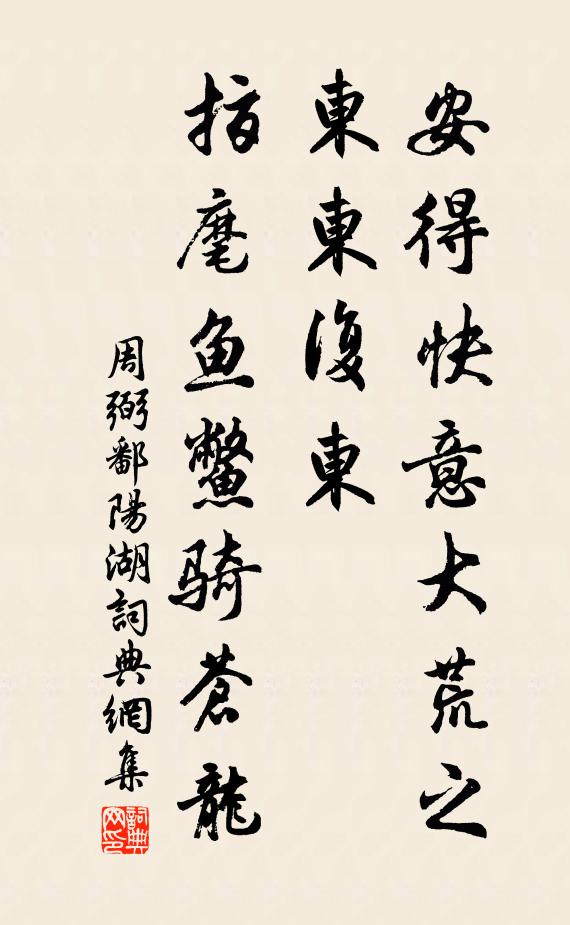 安得快意大荒之
東東東復東
指麾魚鱉騎蒼龍
周弼鄱陽湖詞典網集
詞典網印